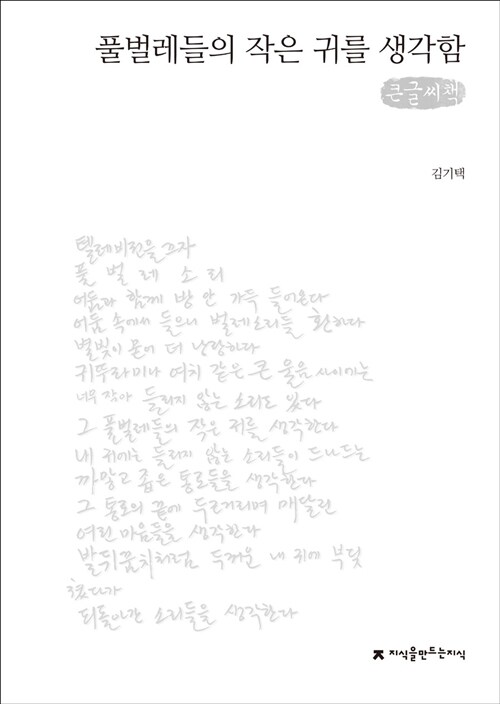 풀벌레들의 작은 귀를 생각함
큰글씨책
김기택
텔레비전을 끄자
풀 벌 레 소 리
어둠과 함께 방 안 가득 들어온다
어둠 속에서 들으니 벌레소리들 환하다
별빛이 묻어 더 낭랑하다
귀뚜라미나 여치 같은 큰 울음 사이에는
너무 작아 들리지 않는 소리도 있다
그 풀벌레들의 작은 귀를 생각한다
내 귀에는 들리지 않는 소리들이 드나드는
까맣고 좁은 통로들을 생각한다
그 통로의 끝에 두근거리며 매달린
여린 마음들을 생각한다
발뒤꿈치처럼 두꺼운 내 귀에 부딪
쳤다가
되돌아간 소리들을 생각한다
지식을만드는지식